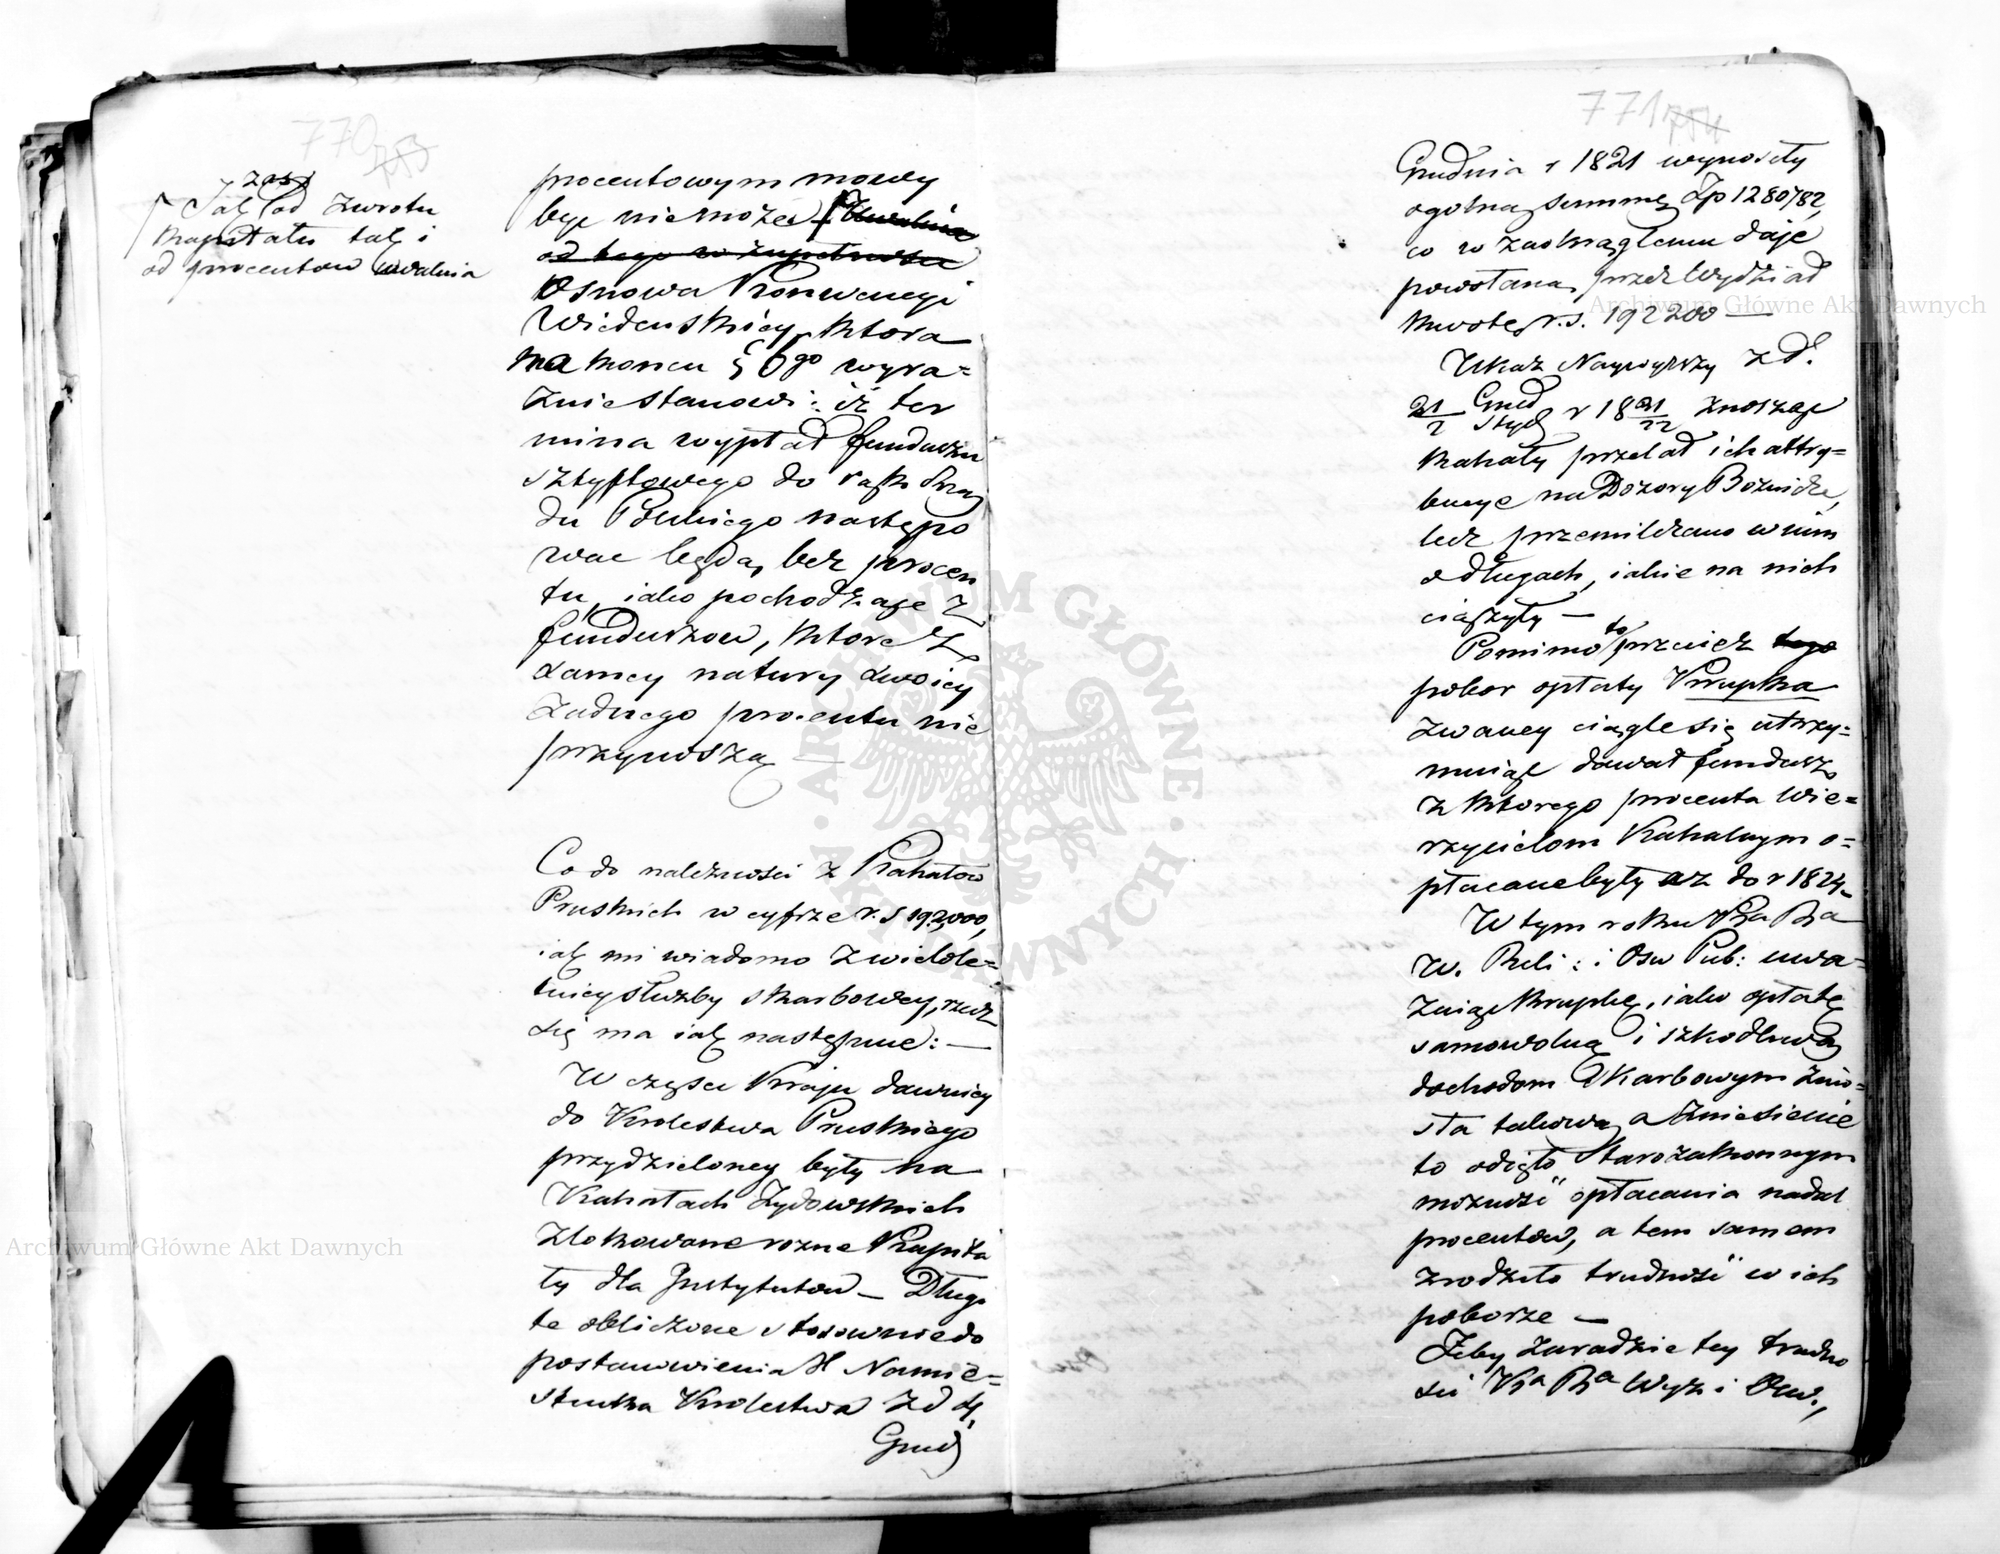 770 753
zaś
Jak od zwrotu
Kapitału tak i
od procentów uwalnia
procentowym mowy
być niemoże
od tego w zupełności
Osnowa Konwencyi
Wiedeńskiéy, która
na końcu § 6go wyra=
źnie stanowi: iż ter
mina wypłat funduszu
sztyftowego do rąk Rzą
du Polskiego następo
wać będą, bez procen
tu, iako pochodzące z
funduszow, ktore z
samey natury swoiey
żadnego procentu nie
przynoszą —
Co do należności z Kahałow
Pruskich w cyfrze r. s 192,000,
iak mi wiadomo z wielole=
tniey służby skarbowey, rzecz
się ma iak następuie: —
W części Kraju dawniey
do Krolestwa Pruskiego
przydzieloney były na
Kahałach Żydowskich
zlokowane rozne Kapita
ły dla Instytutow — Długi
te obliczone stosownie do
postanowienia X Namie=
stnika Krolestwa z d 4
Grud
771 754
Grudnia r 1821 wynosiły
ogolną summę Zp 1280782,
co w zaokrągleniu daje
powołaną przez Wydział
kwotę r. s. 192200 —
Ukaz Naywyższy z d.
21/2 Grud/Stycz r 18 21/22 znosząc
Kahały przelał ich attry=
bucye na Dozory Bóżnicze,
lecz przemilczano w nim
o długach, iakie na nich
ciążyły —
Pomimo to przecież tego
pobor opłaty Krupka
zwaney ciągle się utrzy=
muiąc dawał fundusz,
z ktorego procenta Wie=
rzycielom Kahalnym o=
płacane były aż do r 1824.
W tym roku Kśa Rśa
W. Reli: i Ośw Pub: uwa=
żaiąc krupkę, iako opłatę
samowolną i szkodliwą
dochodom Skarbowym znio=
sła takową, a Zniesienie
to odięło Starozakonnym
możność opłacania nadal
procentów, a tem samem
zrodziło trudność w ich
poborze —
Żeby zaradzić tey trudno
ści Kśa Rśa Wyz i Ośw.,
ARCHIWUM GŁÓWNE AKT DAWNYCH
Archiwum Główne Akt Dawnych
Archiwum Główne Akt Dawnych